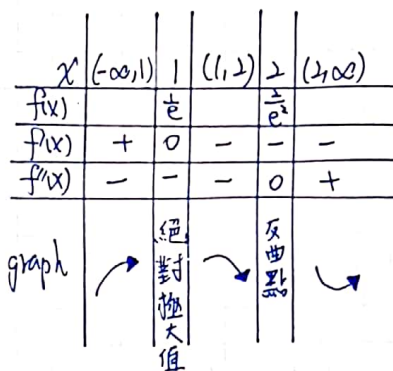 x (-∞,1) 1 (1,2) 2 (2,∞)
f(x) 1/e 2/e²
f'(x) + 0 - - -
f''(x) - - - 0 +
graph 絕對極大值 反曲點